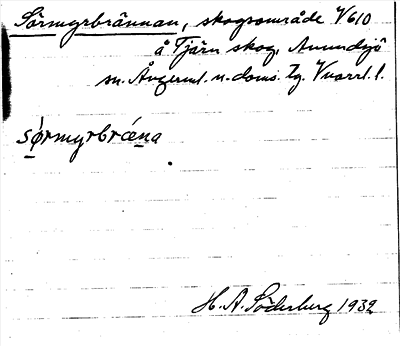 Sörmyrbrännan, skogsområde V610
å Tjärn skog, Anundsjö
sn. Ångerml. n. doms. tg. Vnorrl. l.
sǿrmyrbrǽna
H. A. Söderberg 1932